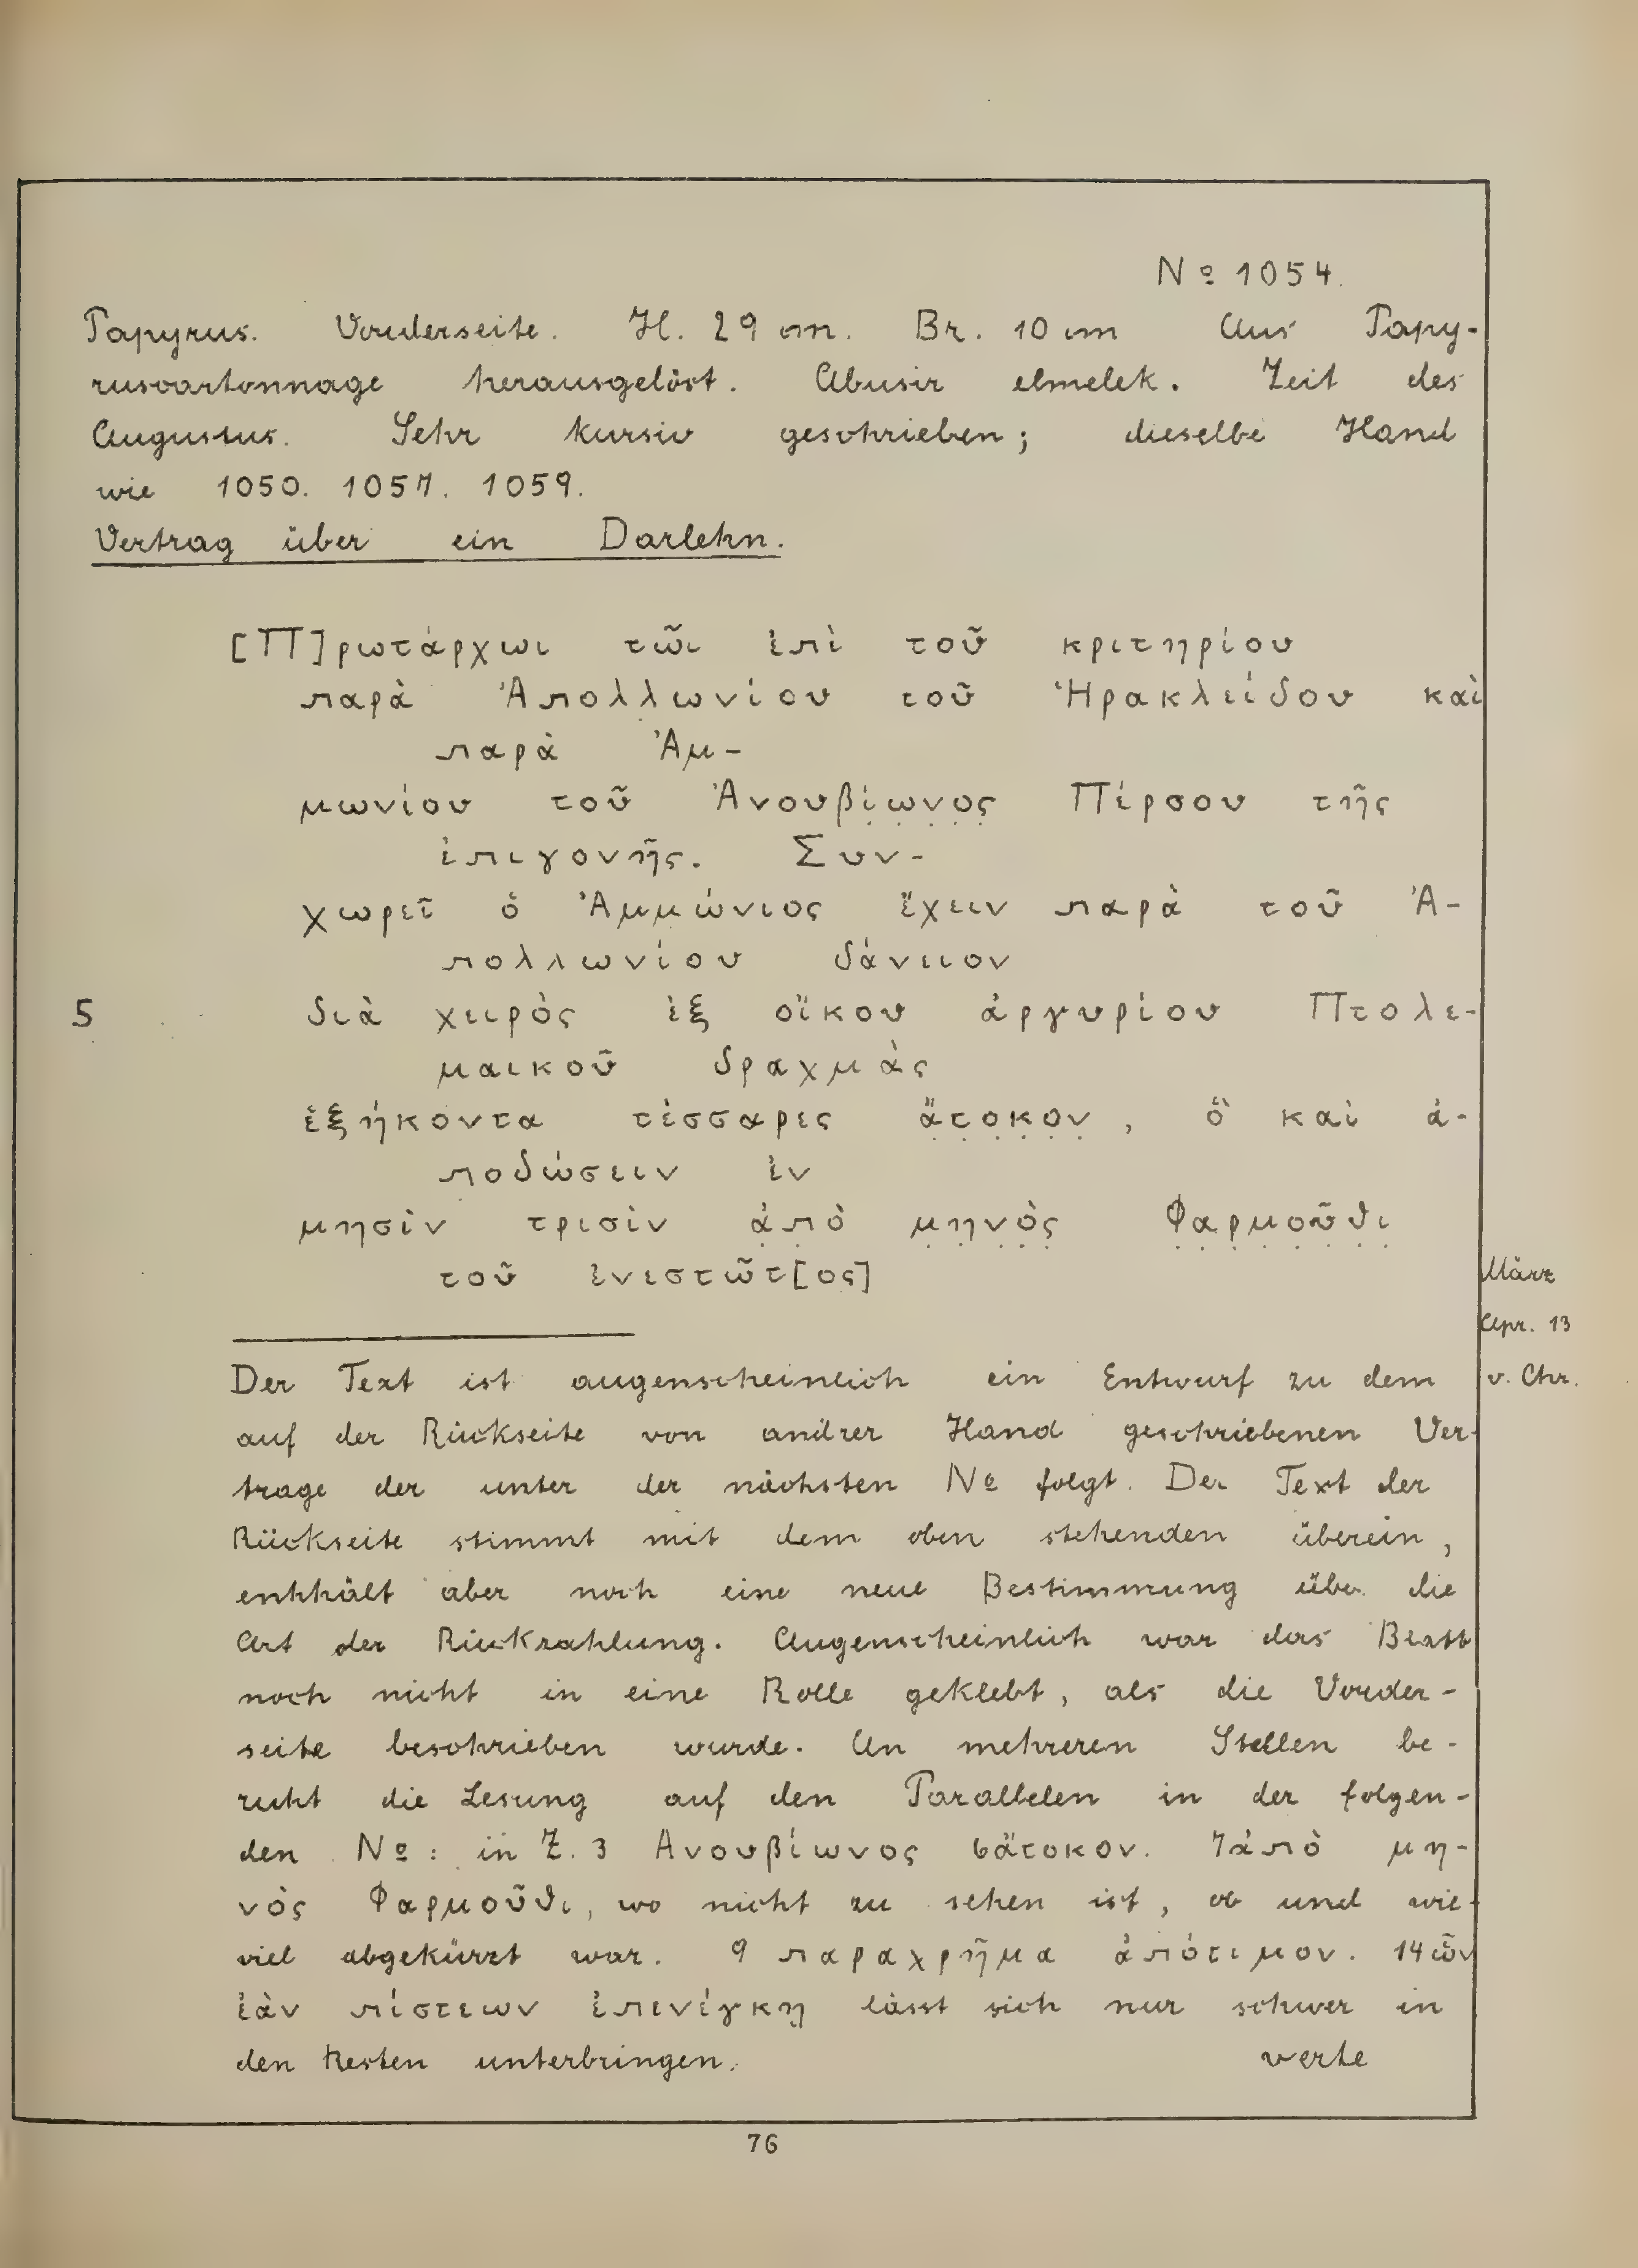 Nº 1054.
Papyrus. Vorderseite. H. 29 cm. Br. 10 cm Aus Papy-
ruscartonnage herausgelöst. Abusir elmelek. Zeit des
Augustus. Sehr kursiv geschrieben; dieselbe Hand
wie 1050. 1057. 1059.
Vertrag über ein Darlehn.
[Π]ρωτάρχωι τῶι ἐπὶ τοῦ κριτηρίου
παρὰ Ἀπολλωνίου τοῦ Ἡρακλείδου καὶ
παρὰ Ἀμ-
μωνίου τοῦ Ἀνουβ̣ί̣ω̣ν̣ο̣ς̣ Πέρσου τῆς
ἐπιγονῆς. Συν-
χωρεῖ ὁ Ἀμμώνιος ἔχειν παρὰ τοῦ Ἀ-
πολλωνίου δάνειον
5 διὰ χειρὸς ἐξ οἴκου ἀργυρίου Πτολε-
μαικοῦ δραχμὰς
ἑξήκοντα τέσσαρες ἄ̣τ̣ο̣κ̣ο̣ν̣, ὃ καὶ ἀ-
ποδώσειν ἐν
μησὶν τρισὶν ἀ̣π̣ὸ̣ μ̣η̣ν̣ὸ̣ς̣ Φ̣α̣ρ̣μ̣ο̣ῦ̣θ̣ι̣
τοῦ ἐνεστῶτ[ος]
März
Apr. 13
v. Chr.
Der Text ist augenscheinlich ein Entwurf zu dem
auf der Rückseite von andrer Hand geschriebenen Ver-
trage der unter der nächsten Nº folgt. Der Text der
Rückseite stimmt mit dem oben stehenden überein,
enthält aber noch eine neue Bestimmung über die
Art der Rückzahlung. Augenscheinlich war das Blatt
noch nicht in eine Rolle geklebt, als die Vorder-
seite beschrieben wurde. An mehreren Stellen be-
ruht die Lesung auf den Parallelen in der folgen-
den Nº: in Z. 3 Ανουβίωνος 6 ἄτοκον. 7 ἀπὸ μη-
νὸς Φαρμοῦθι, wo nicht zu sehen ist, ob und wie-
viel abgekürzt war. 9 παραχρῆμα ἀπότιμον. 14 ὧν
ἐὰν πίστεων ἐπενέγκῃ lässt sich nur schwer in
den Resten unterbringen.
verte
76